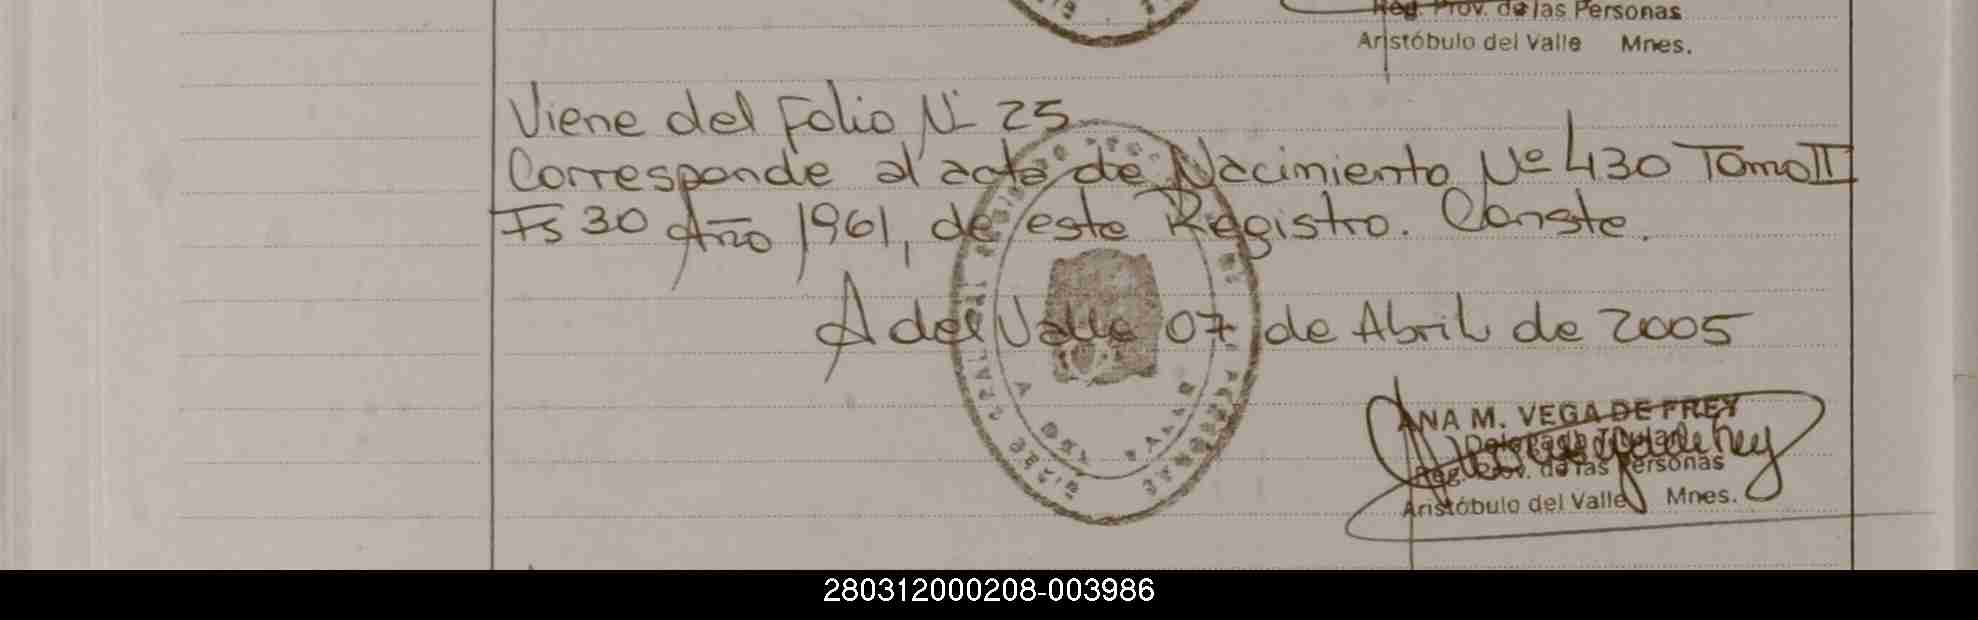 Reg. Prov. de las Personas
Aristóbulo del Valle Mnes.
Viene del Folio Nº 25
Corresponde al acta de Nacimiento Nº 430 Tomo II
Fs 30 Año 1961, de este Registro. Conste.
A del Valle 07 de Abril de 2005
ANA M. VEGA DE FREY
Delegada Titular
Reg. Prov. de las Personas
Aristóbulo del Valle Mnes.
280312000208-003986